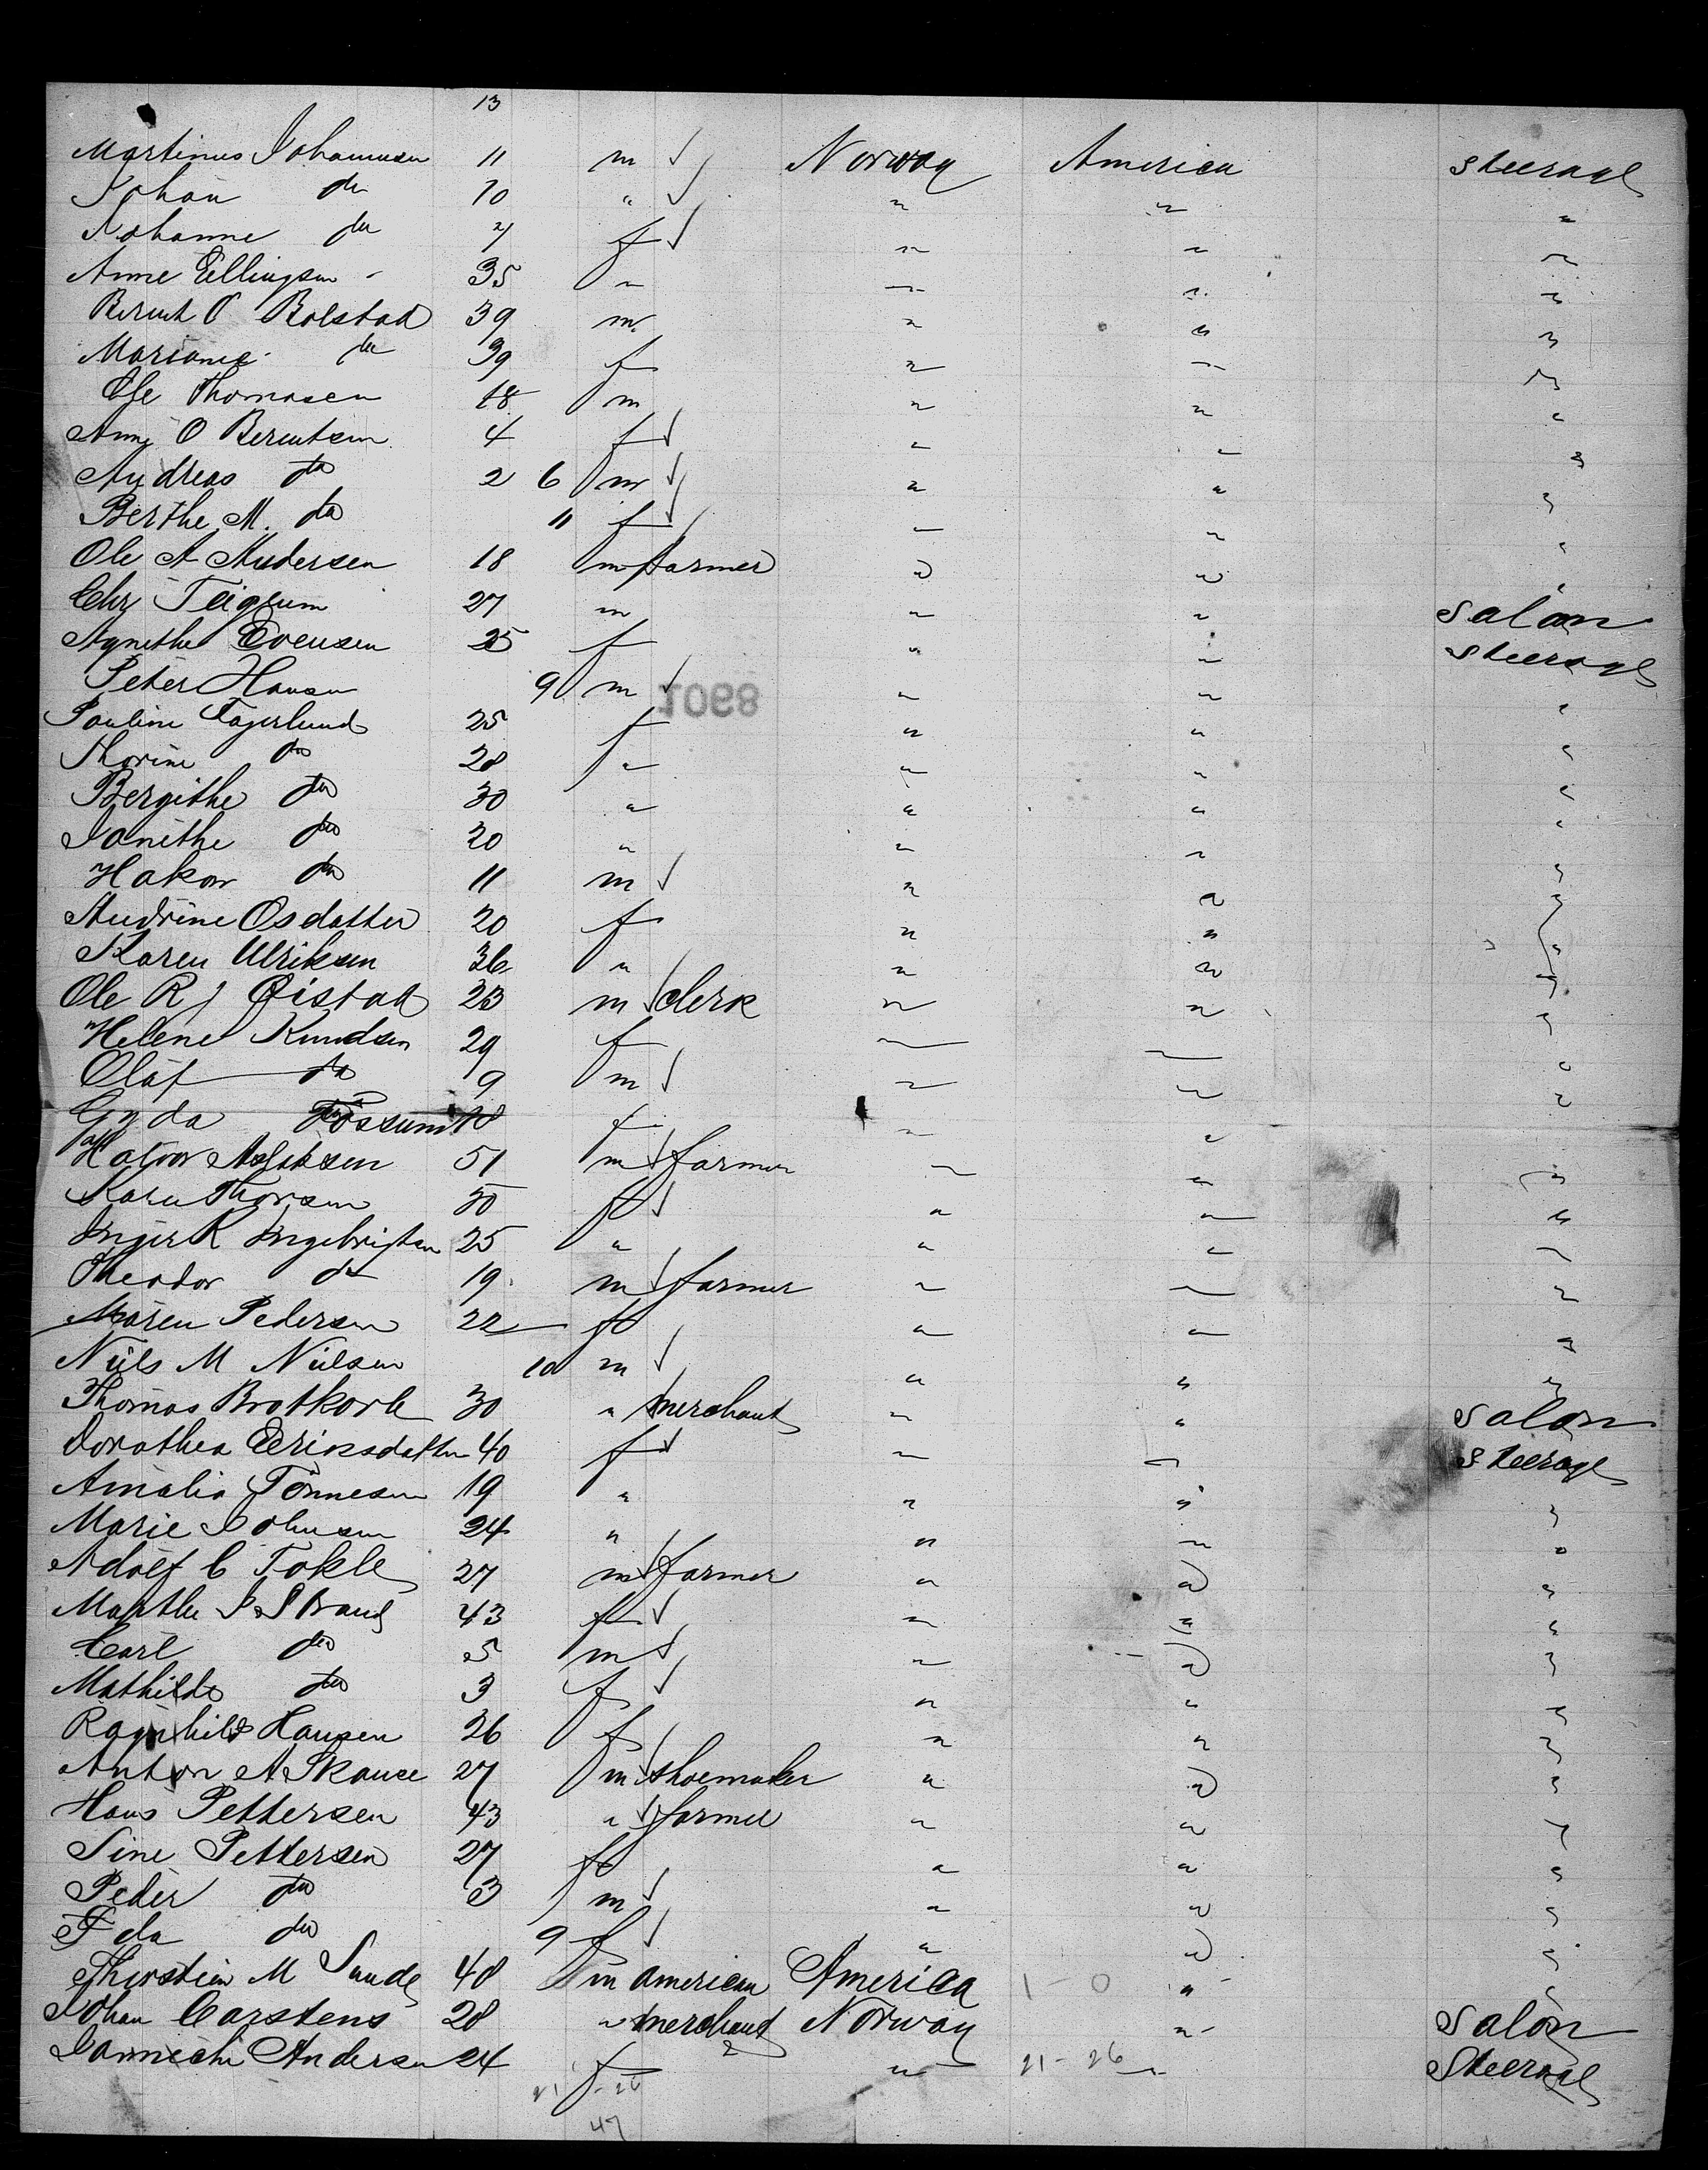 13
Martinus Johannesen 11 m Norway America steerage
Johan do 10 " " " "
Johanne do 7 f " " "
Anne Ellingsen 35 " " " "
Berent O Bolstad 39 m " " "
Mariane do 39 f " " "
Ole Thomasen 18 m " " "
Anne O Berentsen 4 f " " "
Andreas do 2 6 m " " "
Berthe M. do 11 f " " "
Ole A Andersen 18 m farmer " " "
Chr Teigum 27 m " " Salon
Agnethe Evensen 25 f " " Steerage
Peter Hansen 9 m " " "
1068
Pauline Fagerlund 25 f " " "
Thorine do 28 " " " "
Bergithe do 30 " " " "
Janethe do 20 " " " "
Hakon do 11 m " " "
Andrine Osdatter 20 f " " "
Karen Ulriksen 36 " " " "
Ole R J Qistad 23 m clerk " " "
Helene Knudsen 29 f " " "
Olaf do 9 m " " "
Gyda Fossum 18 f " " "
Halvor Aslaksen 51 m farmer " " "
Karen Thorsen 50 f " " "
Inger K Ingebrigtsen 25 " " " "
Theodor do 19 m farmer " " "
Maren Pedersen 22 f " " "
Niels M Nielsen 10 m " " "
Thomas Brotkorb 30 " merchant " " Salon
Dorothea Eriksdatter 40 f " " Steerage
Amalia Tönnesen 19 " " " "
Marie Johnsen 24 " " " "
Adolf C Tokle 27 m farmer " " "
Marthe S Strand 43 f " " "
Carl do 5 m " " "
Mathilde do 3 f " " "
Ragnhild Hansen 26 f " " "
Anton A Skauee 27 m shoemaker " " "
Hans Pettersen 43 " farmer " " "
Sine Pettersen 27 f " " "
Peder do 3 m " " "
Ida do 9 f " " "
Thorstein M Sunde 48 m american America 1-0 " "
Johan Carstens 28 " merchant Norway " Salon
Andersen 24 f " 21-26 " Steerage
21-26
47